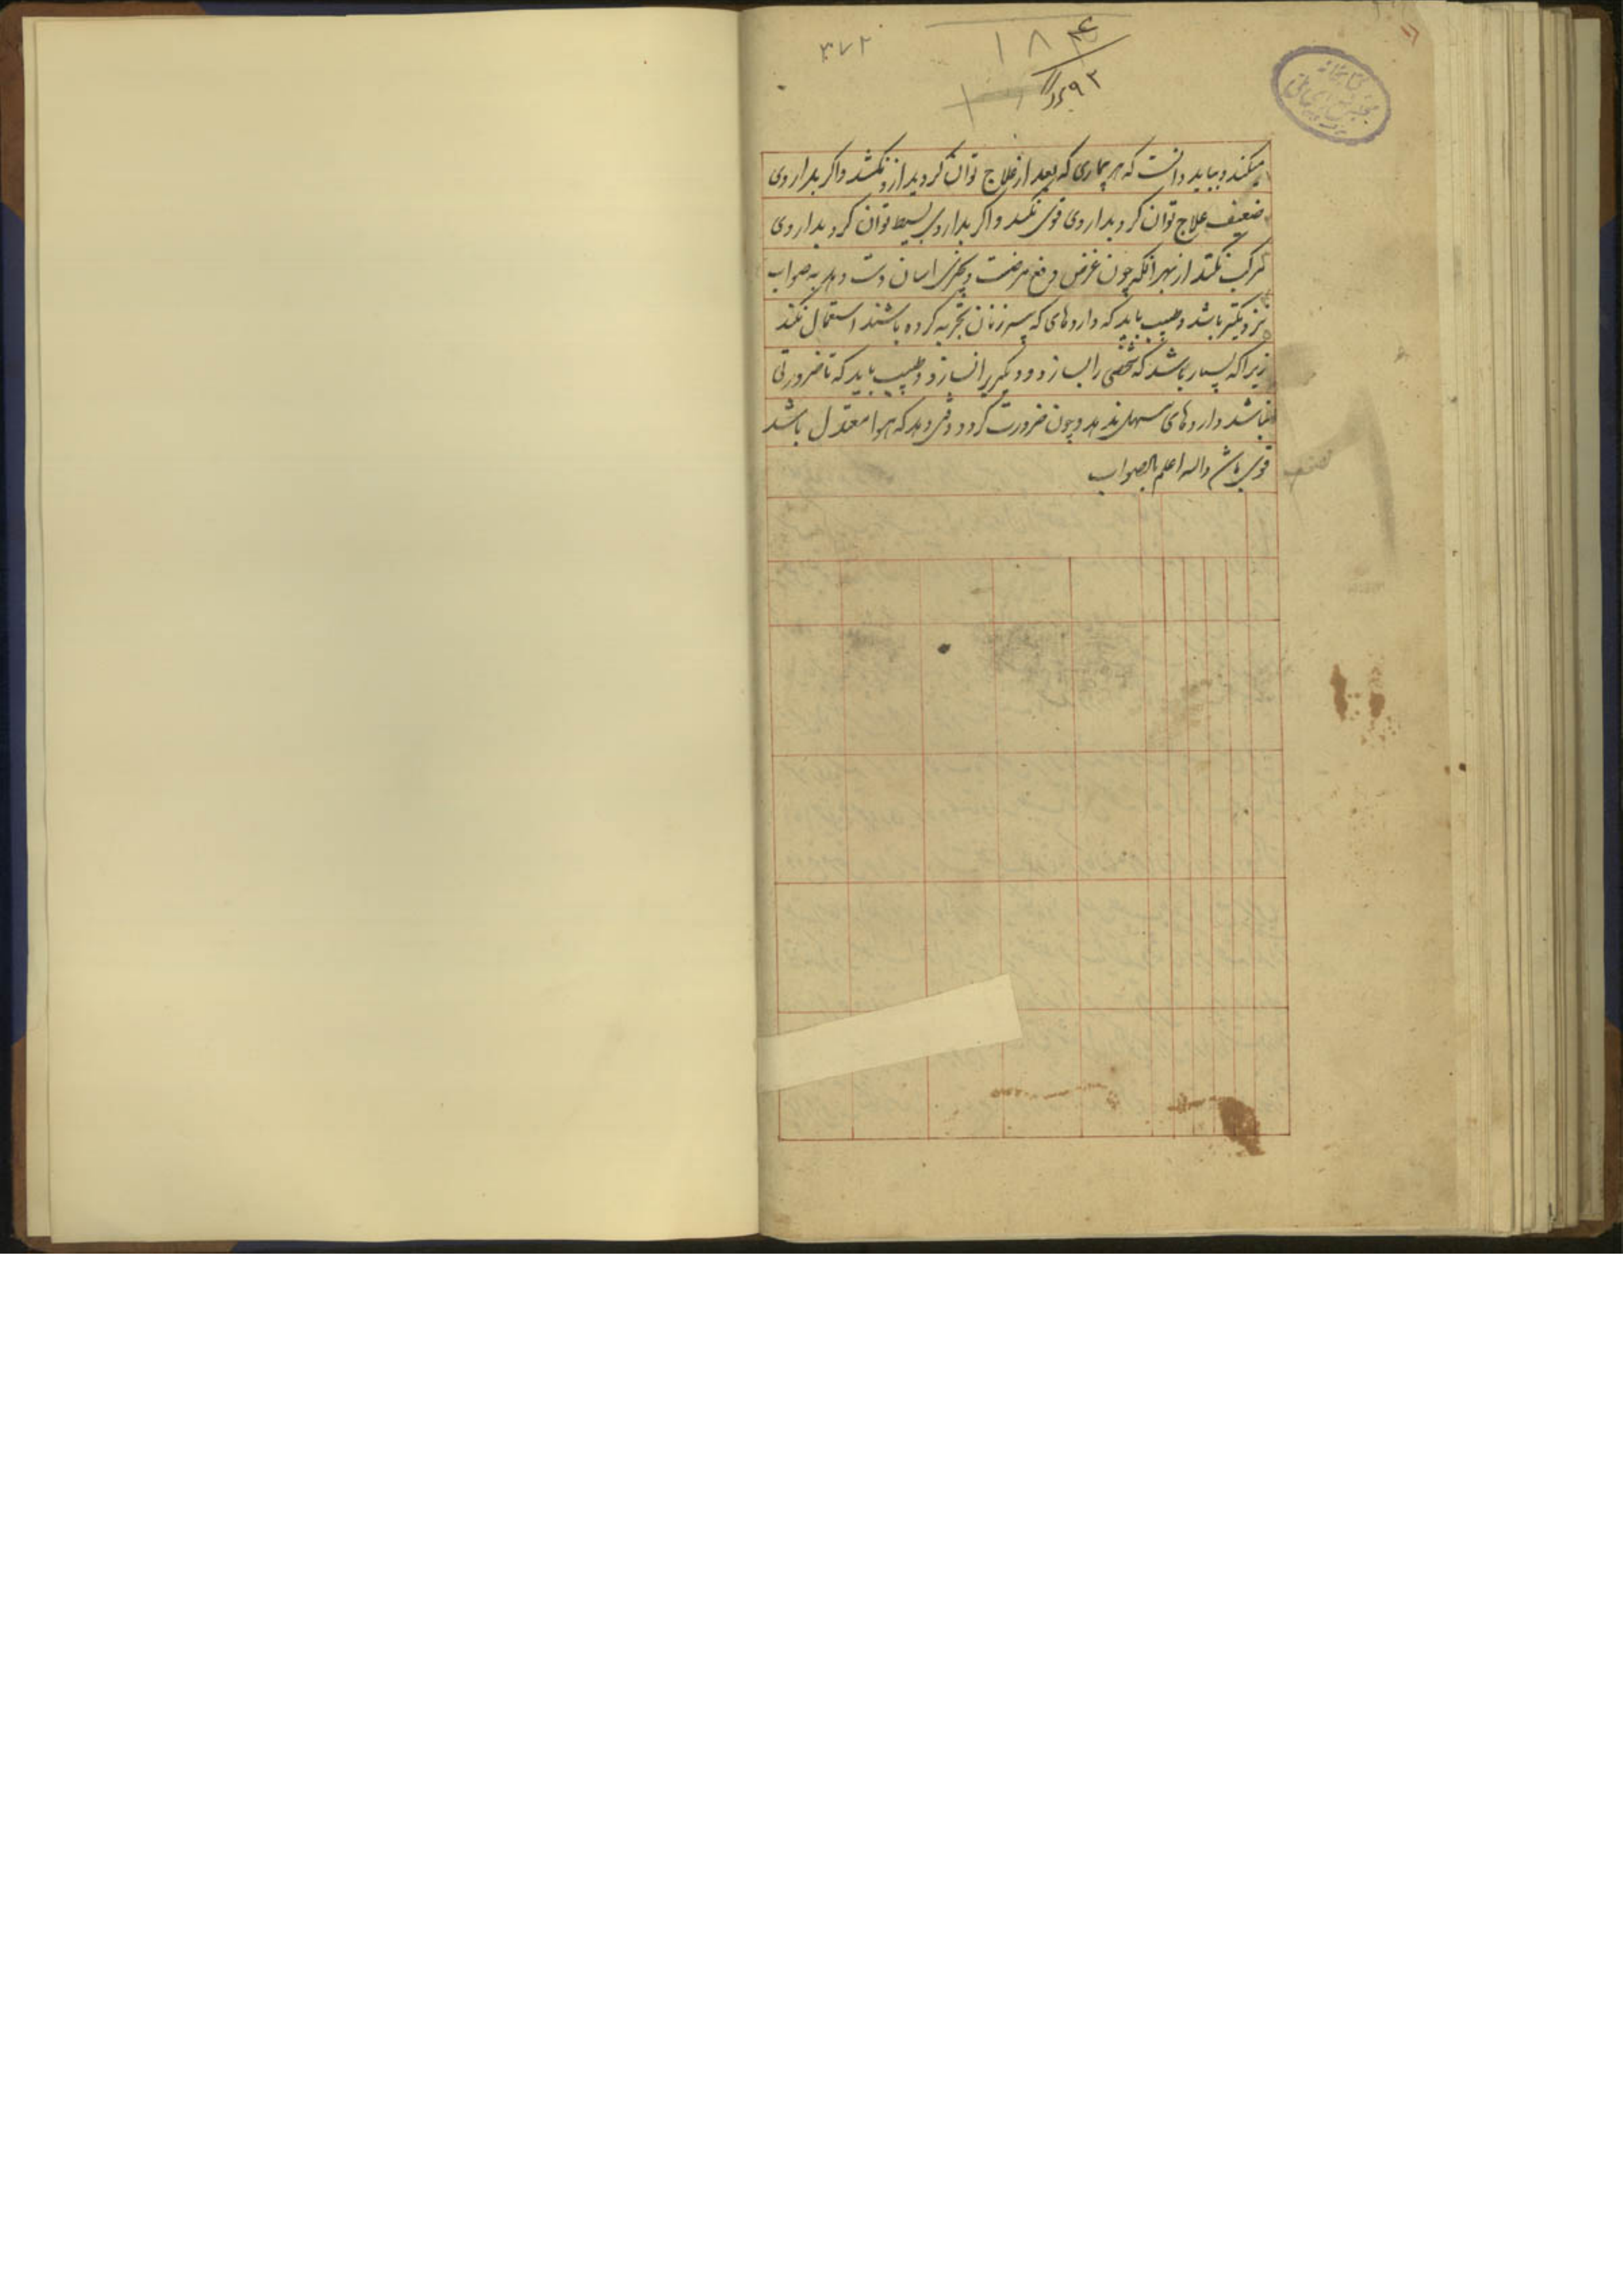 ۳۷۲
۱۸۴
۹۲
میکند و بباید دانست که هر بیماری که بعد از علاج توان کرد بدارو نکنند و اگر بداروی
ضعیف علاج توان کرد بداروی قوی نکنند و اگر بداروی بسیط توان کرد بداروی
مرکب نکنند از بهر انکه چون غرض دفع مرضست و بچیزی اسان دست دهد به صواب
نزدیکتر باشد و طبیب باید که داروهای که پیرزنان تجربه کرده باشند استعمال نکند
زیرا که بسیار باشد که شخصی را بسازد و دیگریرا نسازد و طبیب باید که تا ضرورتی
نباشد داروهای مسهل ندهد و چون ضرورت گردد وقتی دهد که هوا معتدل باشد
قوی باشد والله اعلم بالصواب
کتابخانه
مجلس شورای ملی